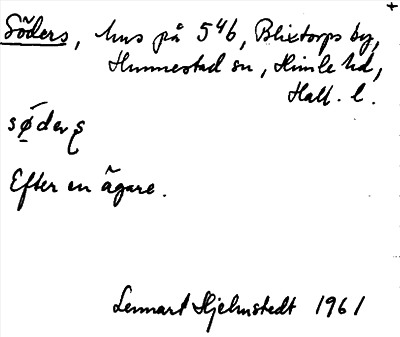 Söders, hus på 5⁴6, Blixtorps by,
Hunnestad sn, Himle hd,
Hall. l.
sø̄dəṣ
Efter en ägare.
Lennart Hjelmstedt 1961